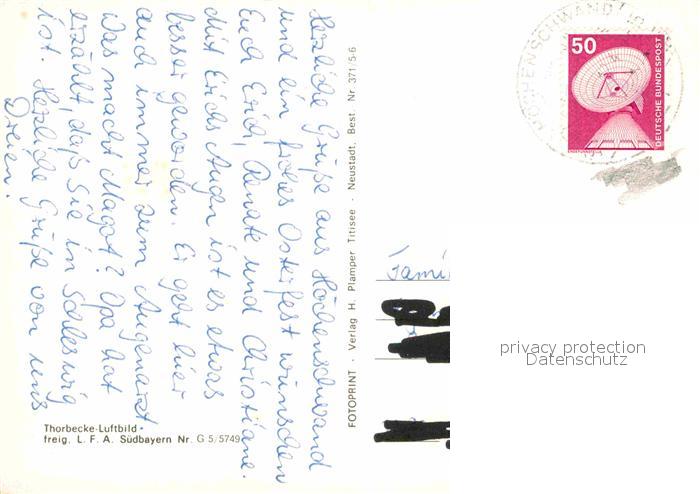 Herzliche Grüße aus Höchenschwand
und ein frohes Osterfest wünschen
Euch Erich, Renate und Christiane.
Mit Erichs Augen ist es etwas
besser geworden. Er geht hier
auch immer zum Augenarzt.
Was macht Margot? Opa hat
erzählt, daß sie in Schleswig
ist. Herzliche Grüße von uns
Dreien.
Thorbecke-Luftbild
freig. L. F. A. Südbayern Nr. G 5/5749
FOTOPRINT · Verlag H. Plamper Titisee · Neustadt. Best. Nr. 371/5-6
HÖCHENSCHWAND
50
DEUTSCHE BUNDESPOST
ERDEFUNKSTELLE
Famil
privacy protection
Datenschutz